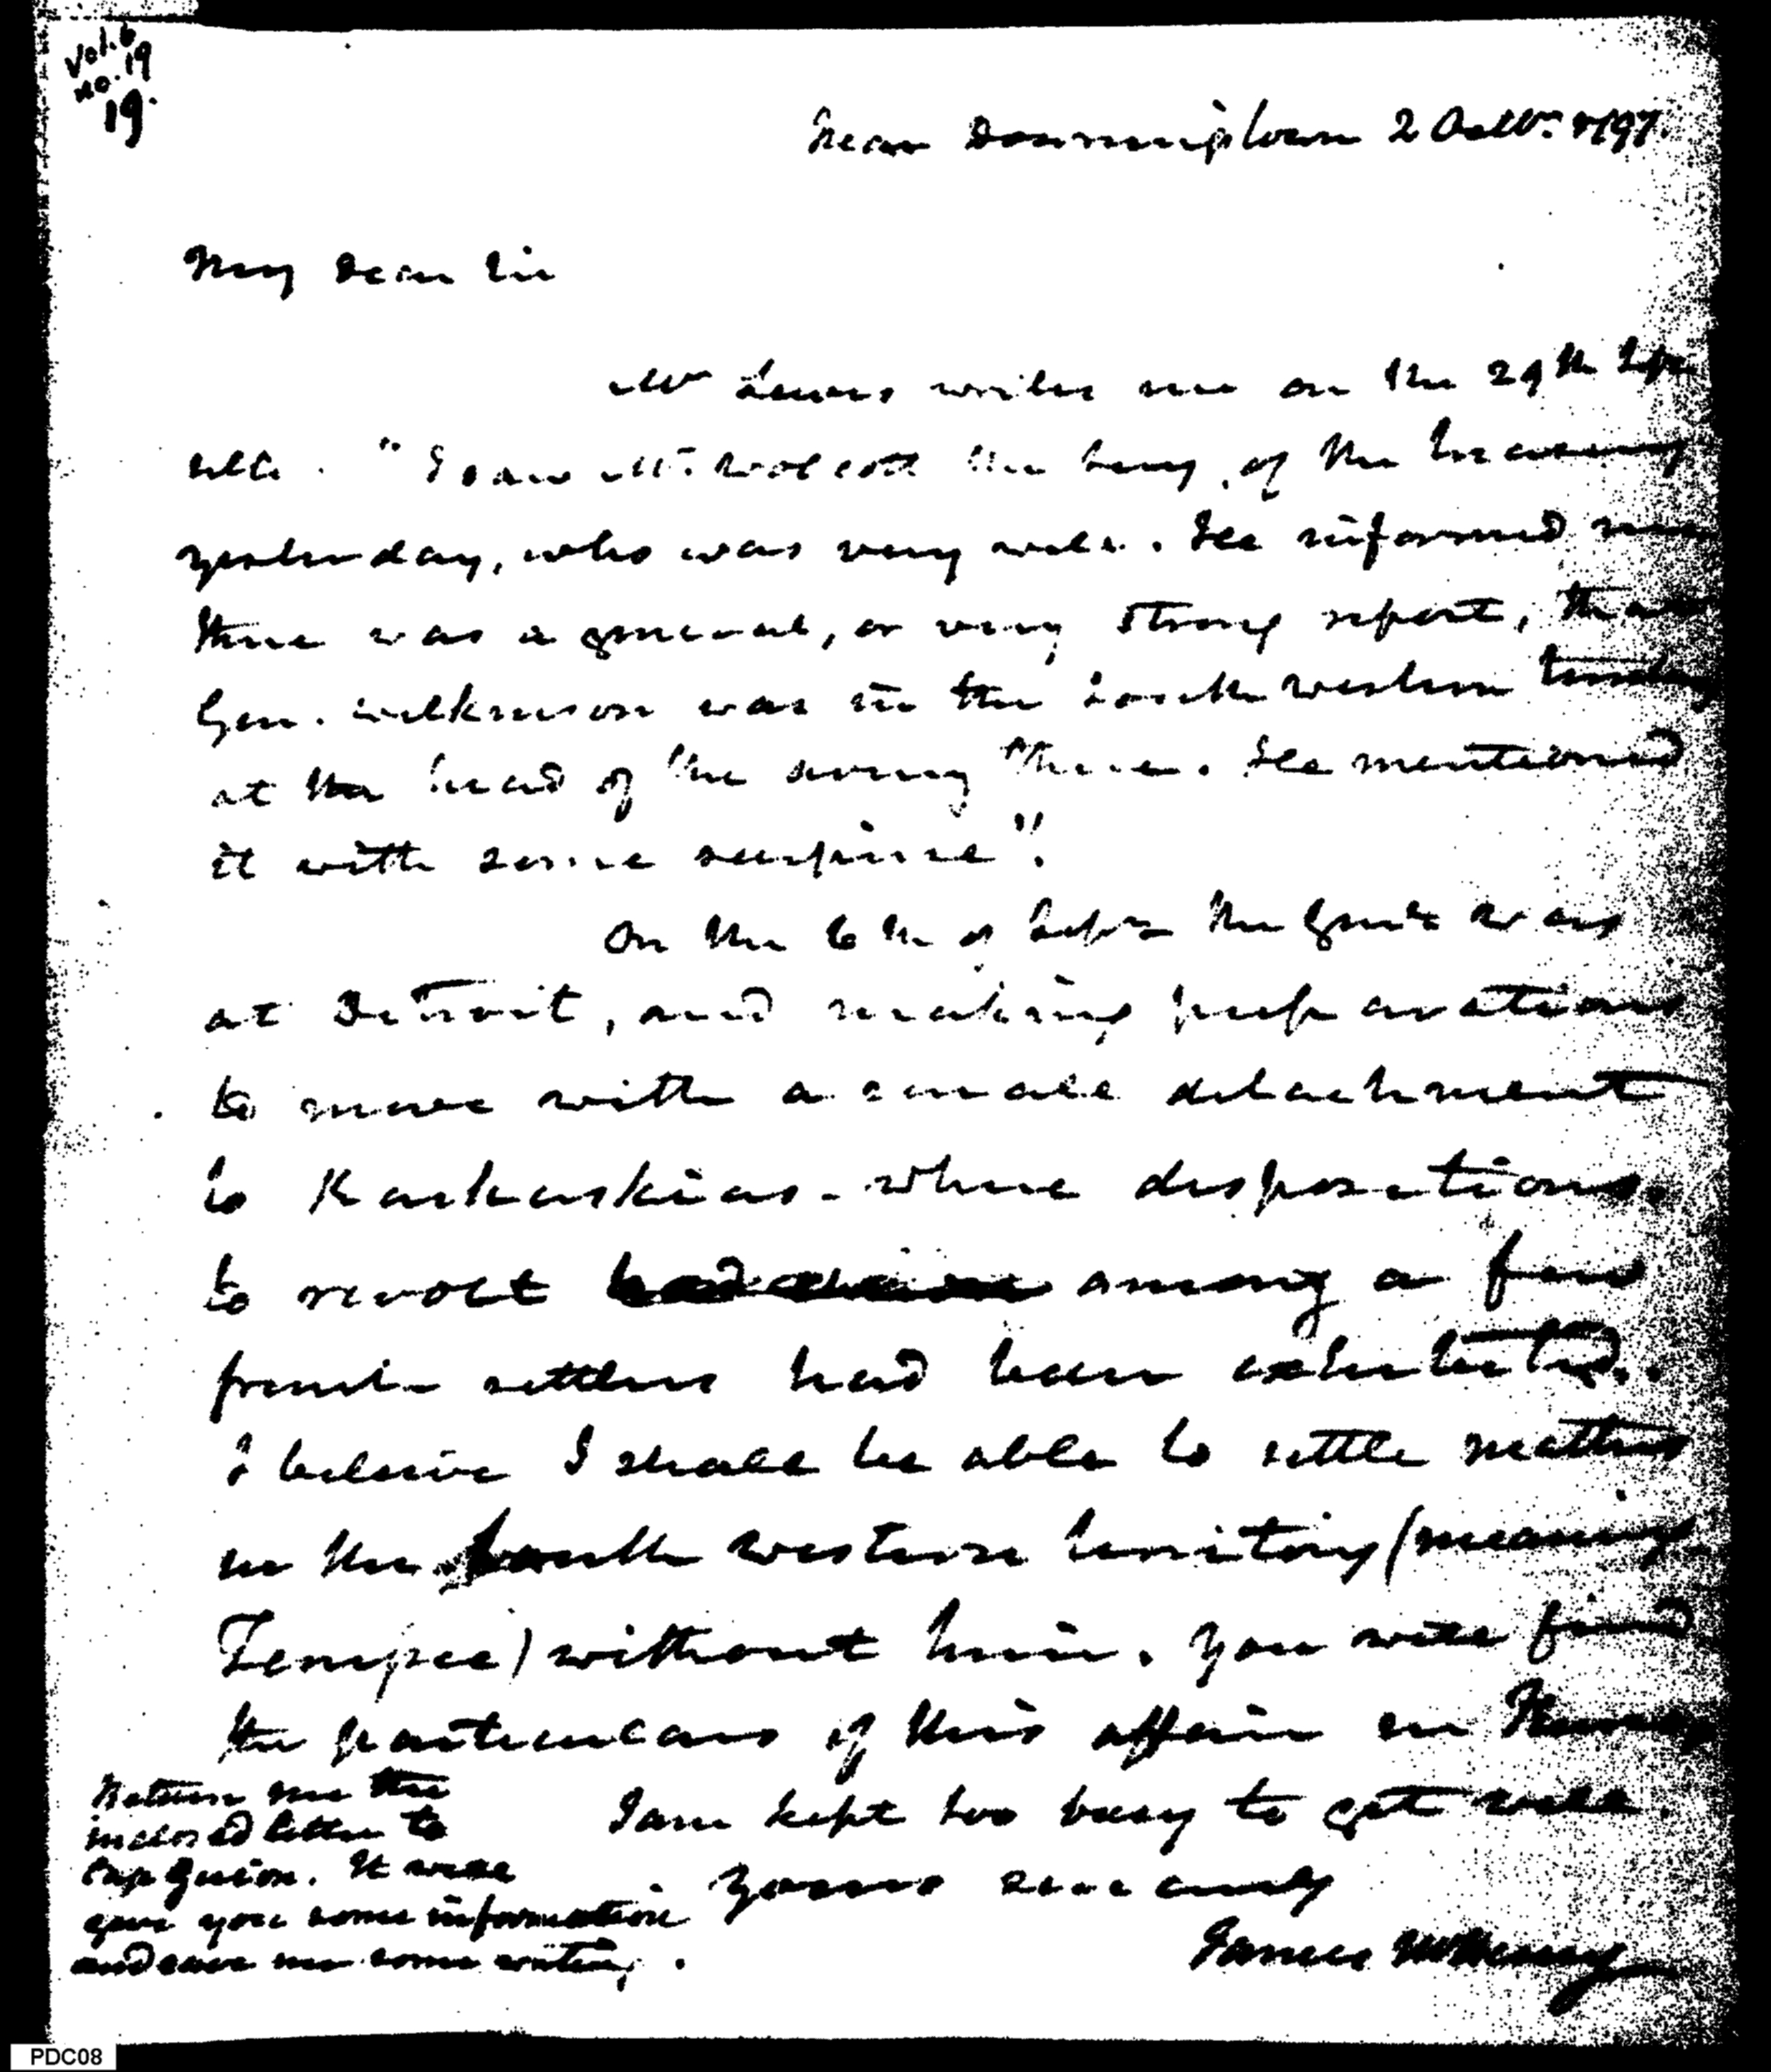 Vol. 6
no. 19
19.
near Downingtown 2 Octbr. 1797.
My dear Sir
Mr Lewis writes me on the 29th Sepr
ulto. "I saw Mr. Wolcott the Secy. of the Treasury
yesterday, who was very well. He informed me
there was a general, or very strong report, that
Gen. Wilkinson was in the South western
at the head of the army there. He mentioned
it with some surprise".
On the 6th of Sepr the Genl was
at Detroit, and making preparations
to move with a small detachment
to Kaskaskias - where dispositions
to revolt among a few
french settlers had been exhibited.
I believe I shall be able to settle matters
in the South western territory (meaning
Tenessee) without him. You will find
the particulars of this affair in
I am kept too busy to get well
Yours sincerely
James McHenry
Return me the
inclosed letter to
Cap Guion. It will
give you some information
and save me some writing.
PDC08